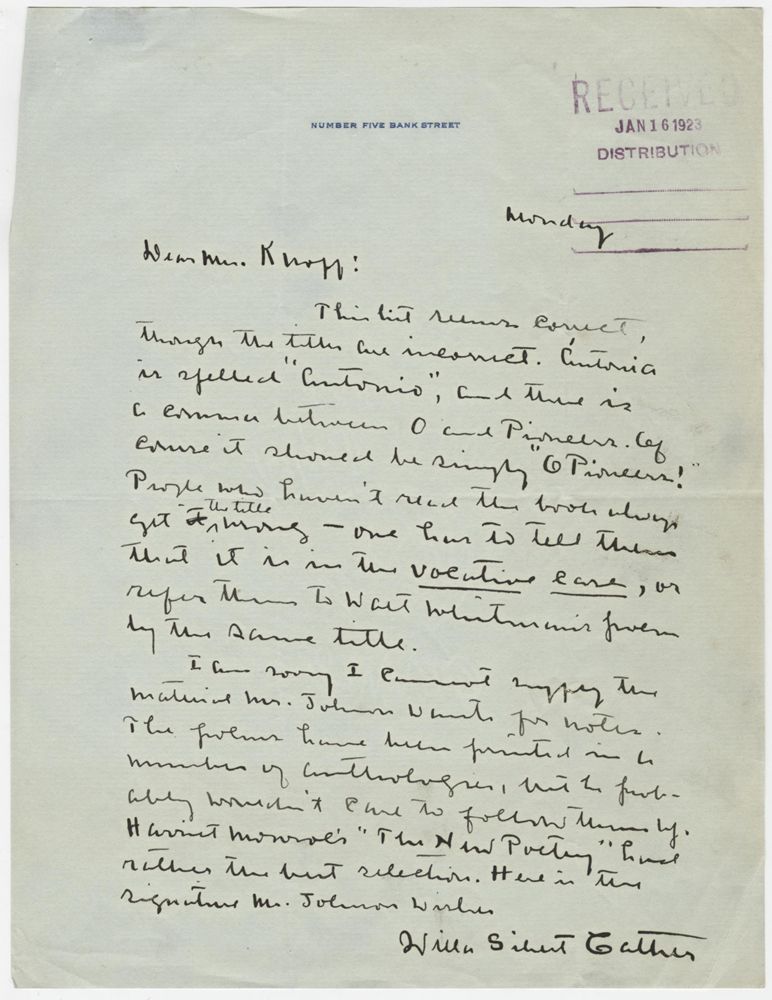 NUMBER FIVE BANK STREET
RECEIVED
JAN 16 1923
DISTRIBUTION
Monday
Dear Mr. Knopf:
This list seems correct,
though the titles are incorrect. Antonia
is spelled "Antonio", and there is
a comma between O and Pioneers. Of
course it should be simply "O Pioneers!"
People who haven't read the book always
get the title wrong — one has to tell them
that it is in the vocative case, or
refer them to Walt Whitman's poem
by the same title.
I am sorry I cannot supply the
material Mr. Johnson wants for notes.
The poems have been printed in a
number of anthologies, but he prob-
ably wouldn't care to follow them up.
Harriet Monroe's "The New Poetry" had
rather the best selection. Here is the
signature Mr. Johnson wishes
Willa Sibert Cather